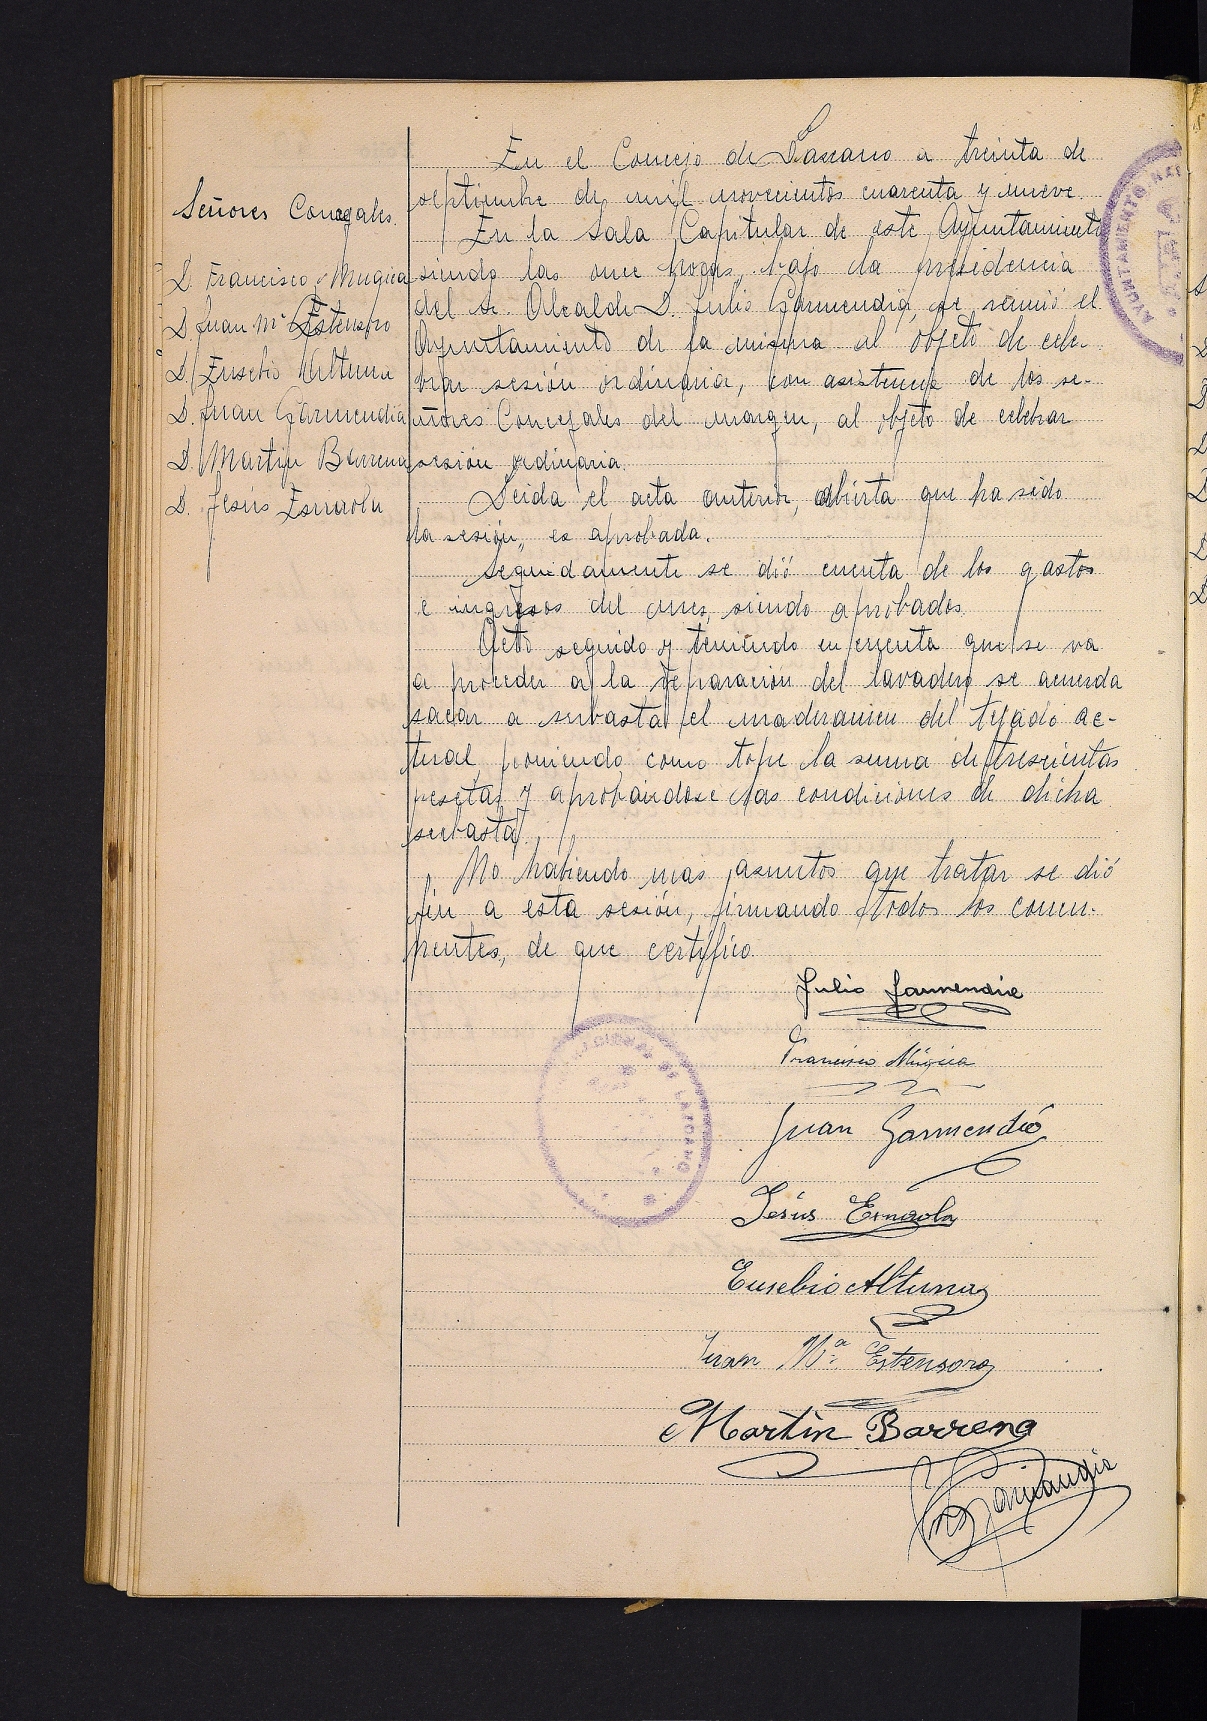 Señores Concegales
D. Francisco Mugica
D. Juan Mª Estensoro
D. Eusebio Altuna
D. Juan Garmendia
D. Martin Barrena
D. Jesús Esnaola
En el Concejo de Lazcano a treinta de
septiembre de mil novecientos cuarenta y nueve.
En la Sala Capitular de este Ayuntamiento
siendo las once horas, bajo la presidencia
del Sr. Alcalde D. Julio Garmendia, se reunió el
Ayuntamiento de la misma al objeto de cele-
brar sesión ordinaria, con asistencia de los se-
ñores Concejales del margen, al objeto de celebrar
sesión ordinaria.
Leida el acta anterior, abierta que ha sido
la sesión, es aprobada.
Seguidamente se dió cuenta de los gastos
e ingresos del mes, siendo aprobados.
Acto seguido y teniendo en cuenta que se va
a proceder a la reparación del lavadero se acuerda
sacar a subasta el maderamen del tejado ac-
tual, poniendo como tope la suma de trescientas
pesetas y aprobándose las condiciones de dicha
subasta.
No habiendo mas asuntos que tratar se dió
fin a esta sesión, firmando todos los concu-
rrentes, de que certifico.
Julio Garmendia
Francisco Múgica
Juan Garmendia
Jesús Esnaola
Eusebio Altuna
Juan Mª Estensoro
Martin Barrena
AYUNTAMIENTO
LAZCANO